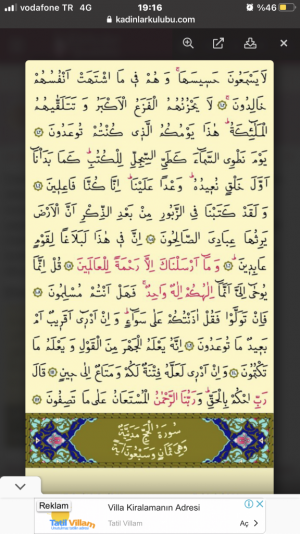 vodafone TR 4G 19:16 %46
kadinlarkulubu.com
لَا يَسْمَعُونَ حَسِيسَهَاۚ وَهُمْ فِي مَا اشْتَهَتْ اَنْفُسُهُمْ
خَالِدُونَ لَا يَحْزُنُهُمُ الْفَزَعُ الْاَكْبَرُ وَتَتَلَقّٰيهُمُ
الْمَلٰٓئِكَةُۜ هٰذَا يَوْمُكُمُ الَّذِي كُنْتُمْ تُوعَدُونَ
يَوْمَ نَطْوِي السَّمَٓاءَ كَطَيِّ السِّجِلِّ لِلْكُتُبِۜ كَمَا بَدَأْنَٓا
اَوَّلَ خَلْقٍ نُعِيدُهُۜ وَعْدًا عَلَيْنَاۜ اِنَّا كُنَّا فَاعِلِينَ
وَلَقَدْ كَتَبْنَا فِي الزَّبُورِ مِنْ بَعْدِ الذِّكْرِ اَنَّ الْاَرْضَ
يَرِثُهَا عِبَادِيَ الصَّالِحُونَ اِنَّ فِي هٰذَا لَبَلَاغًا لِقَوْمٍ
عَابِدِينَۜ وَمَٓا اَرْسَلْنَاكَ اِلَّا رَحْمَةً لِلْعَالَمِينَ قُلْ اِنَّمَا
يُوحٰٓى اِلَيَّ اَنَّمَٓا اِلٰهُكُمْ اِلٰهٌ وَاحِدٌۚ فَهَلْ اَنْتُمْ مُسْلِمُونَ
فَاِنْ تَوَلَّوْا فَقُلْ اٰذَنْتُكُمْ عَلٰى سَوَٓاءٍۜ وَاِنْ اَدْرِٓي اَقَرِيبٌ اَمْ
بَعِيدٌ مَا تُوعَدُونَ اِنَّهُ يَعْلَمُ الْجَهْرَ مِنَ الْقَوْلِ وَيَعْلَمُ مَا
تَكْتُمُونَ وَاِنْ اَدْرِي لَعَلَّهُ فِتْنَةٌ لَكُمْ وَمَتَاعٌ اِلٰى حِينٍ قَالَ
رَبِّ احْكُمْ بِالْحَقِّۜ وَرَبُّنَا الرَّحْمٰنُ الْمُسْتَعَانُ عَلٰى مَا تَصِفُونَ
سُورَةُ الْحَجِّ مَدَنِيَّةٌ
وَهِيَ ثَمَانٍ وَسَبْعُونَ اٰيَةً
Reklam
Villa Kiralamanın Adresi
Tatil Villam
Tatil Villam
Aç